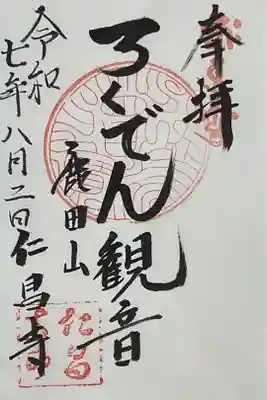 奉拝
ろくでん観音
鹿田山
令和七年八月二日仁昌寺